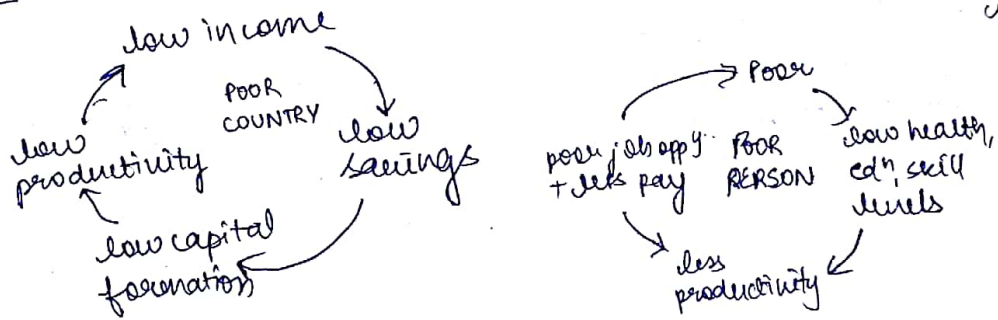 low income
POOR
COUNTRY
low
savings
low capital
formation
low
productivity
Poor
low health,
edn, skill
levels
less
productivity
poor job oppy
+ less pay
POOR
PERSON